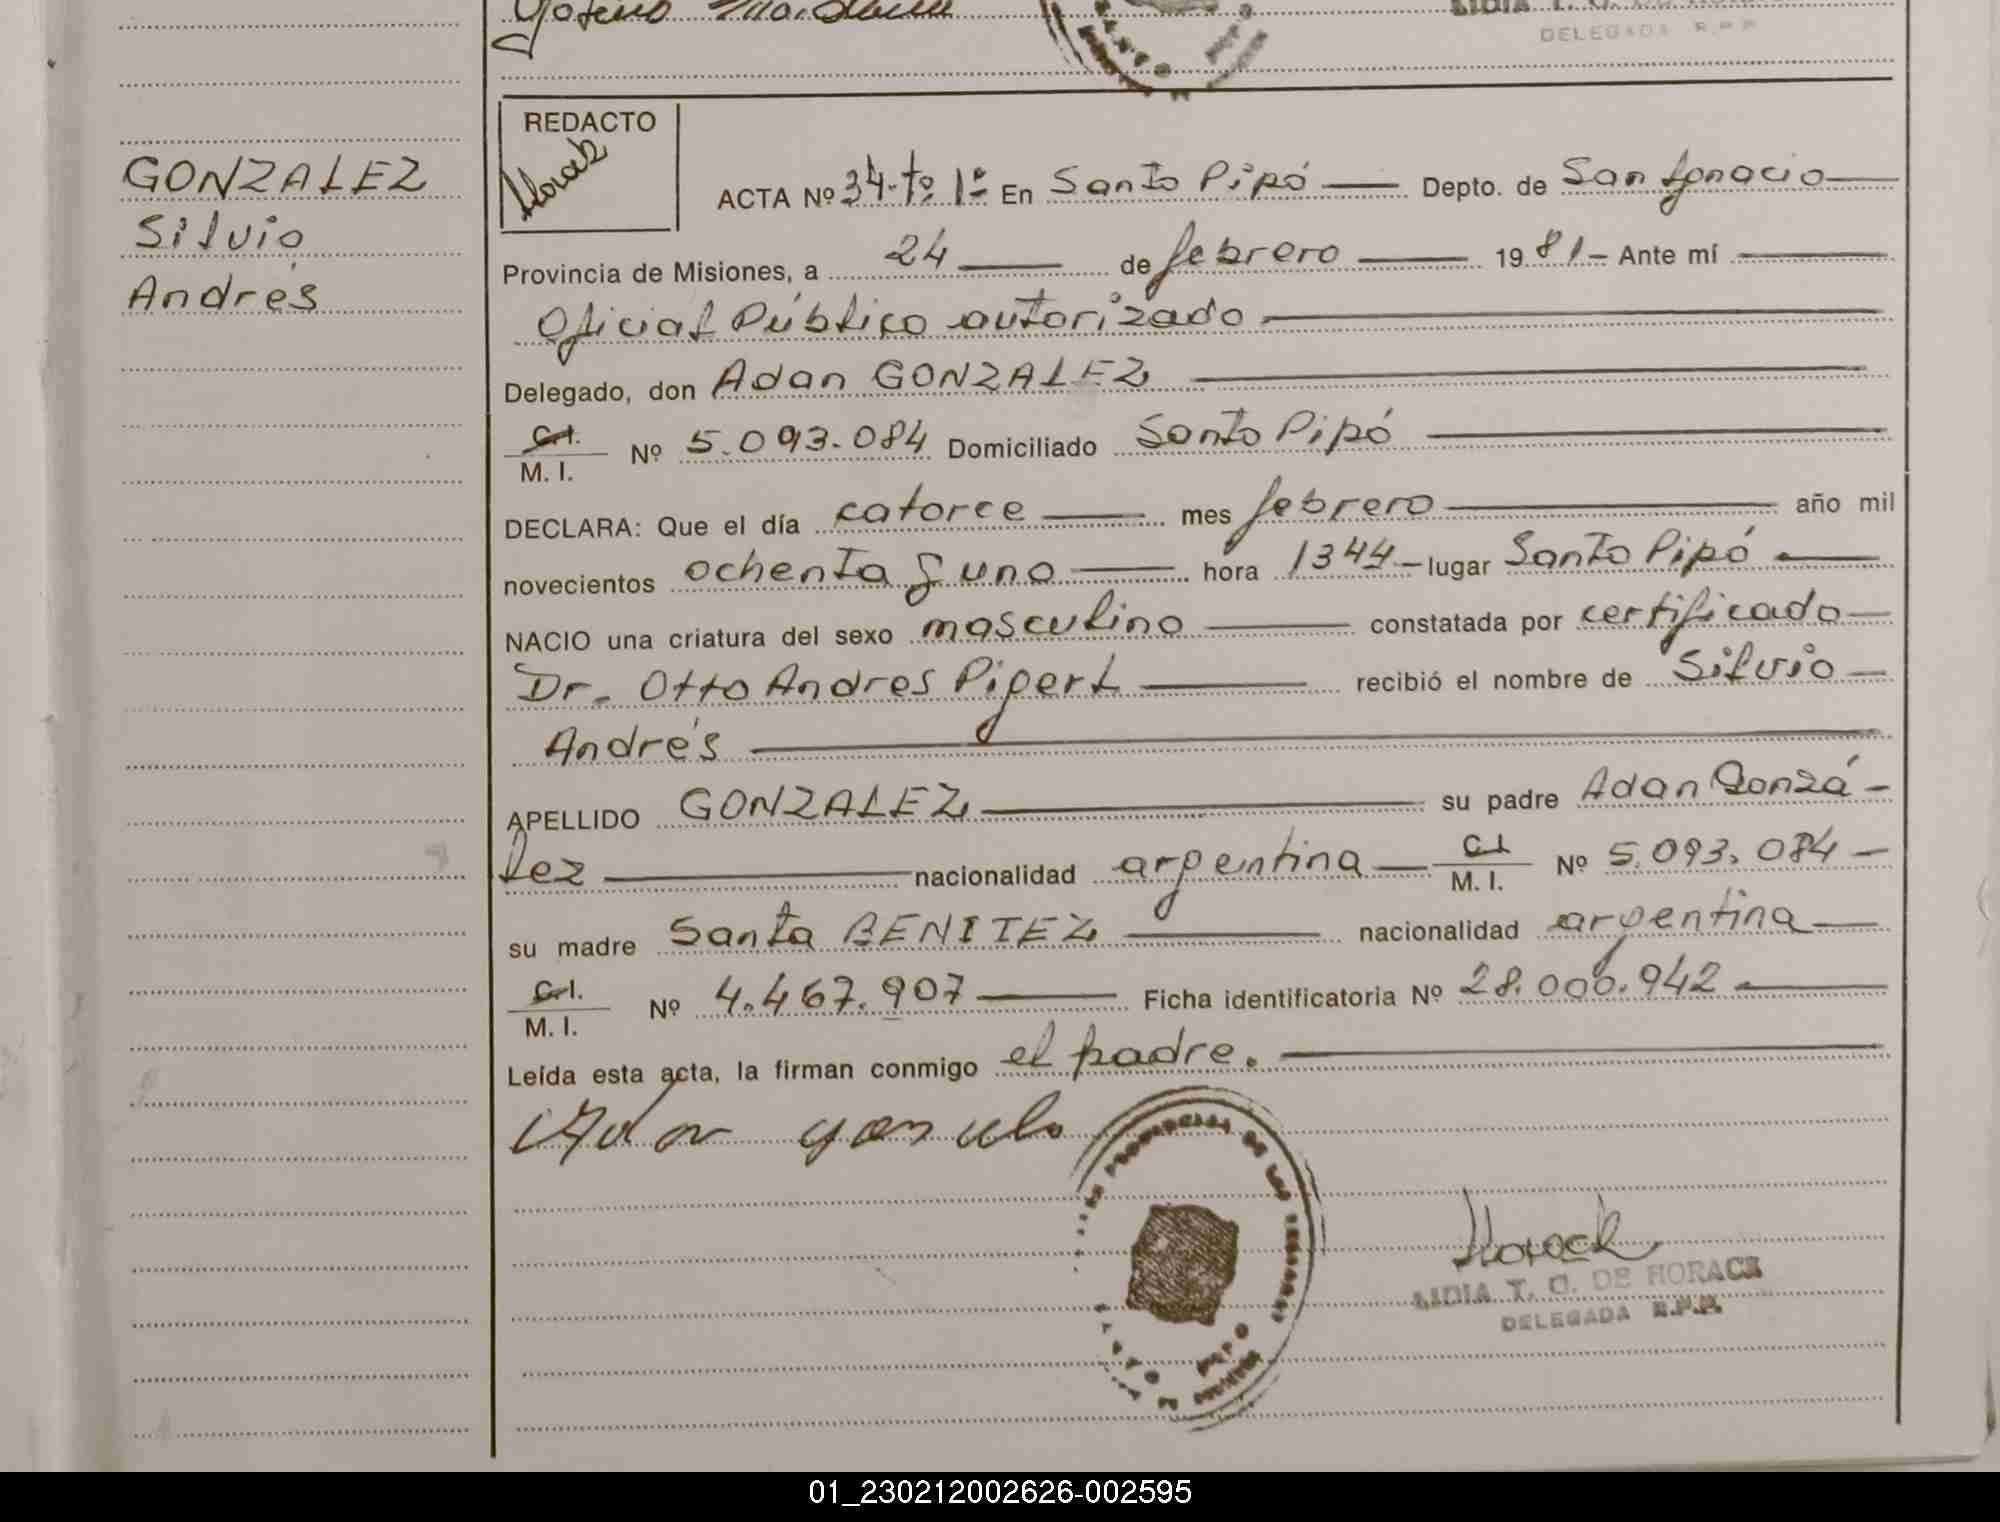 LIDIA T. O. DE HORACK
DELEGADA R.P.P.
GONZALEZ
Silvio
Andrés
REDACTO
Horack
ACTA Nº 34-tº 1º- En Santo Pipó Depto. de San Ignacio
Provincia de Misiones, a 24 de febrero 1981- Ante mí
Oficial Público autorizado
Delegado, don Adan GONZALEZ
C. I.
M. I. Nº 5.093.084 Domiciliado Santo Pipó
DECLARA: Que el día catorce mes febrero año mil
novecientos ochenta y uno hora 1344- lugar Santo Pipó
NACIO una criatura del sexo masculino constatada por certificado
Dr. Otto Andres Pigert recibió el nombre de Silvio
Andrés
APELLIDO GONZALEZ su padre Adan Gonzá-
lez nacionalidad argentina C. I.
M. I. Nº 5.093.084
su madre Santa BENITEZ nacionalidad argentina
C. I.
M. I. Nº 4.467.907 Ficha identificatoria Nº 28.000.942
Leída esta acta, la firman conmigo el padre.
Horack
LIDIA T. O. DE HORACK
DELEGADA R.P.P.
01_230212002626-002595